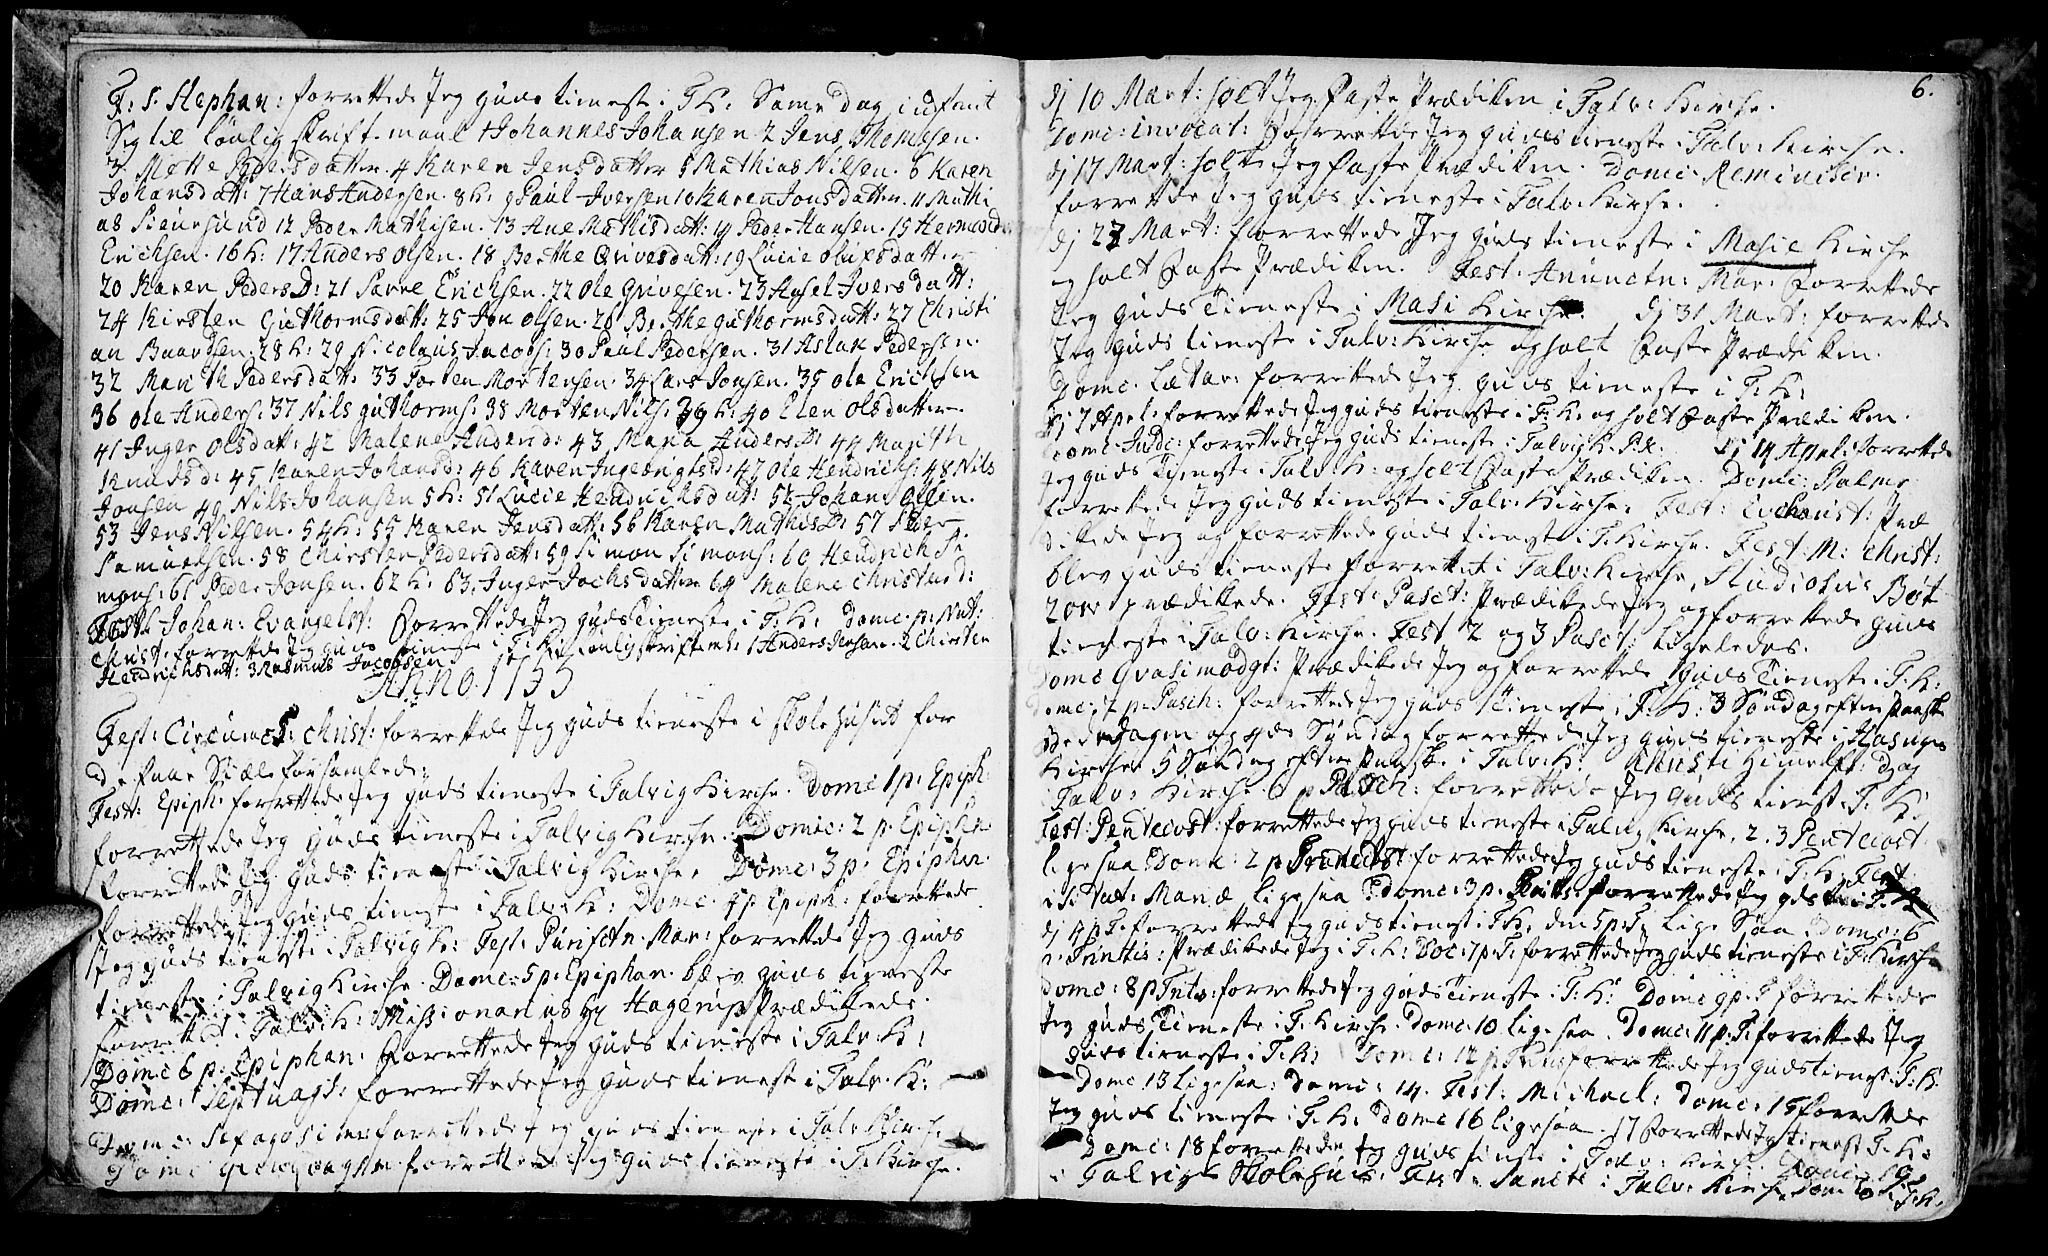 F: S. Stephan: forrettede Jeg Guds tieneste i T. K: Same dag indfant
Sig til lönlig skriftemaal 1 Johannes Johansen 2 Jens Thomesen.
3 Mette Pedersdatter. 4 Karen Jensdatter 5 Mathias Nilsen. 6 Karen
Johansdatt: 7 Hans Andersen. 8 K: 9 Paul Iversen 10 Karen Jonsdatter. 11 Mathi
as 12 Peder Mathisen. 13 Ane Mathisdatt: 14 Peder Hansen. 15
Erichsen. 16 K: 17 Anders Olsen. 18 Berthe 19 Lucie Olufsdatter
20 Karen Peders D: 21 Erichsen. 22 Ole 23 Axsel Iversdatt:
24 Kirsten Guthormsdatt: 25 Jon Olsen. 26 Berthe Guthormsdatt: 27 Christi
an Baardsen. 28 K: 29 Nicolaus Jacobs: 30 Paul Pedersen. 31 Aslak Pedersen.
32 Marith Pedersdatt: 33 Morten Mortensen. 34 Lars Jonsen. 35 Ole Erichsen
36 Ole Anders: 37 Nils Guthorms: 38 Morten Nils: 39 K: 40 Elen Olsdatter
41 Inger Olsdatt: 42 Malene Anders d: 43 Maria Anders D: 44 Marith
Knuds d: 45 Karen Johans d: 46 Karen Ingebrigts d: 47 Ole Hendrichs: 48 Nils
Jonsen 49 Nils Johansen 5 K: 51 Lucie Hendrichsdatt: 52 Johan Ollin.
53 Jens Nilsen. 54 K: 55 Karen Jonsdatt: 56 Karen Mathis D: 57 Peder
Samuelsen. 58 Chirsten Pedersdatt: 59 Simon Simons: 60 Hendrich Si
mons: 61 Peder Jonsen. 62 K: 63. Inger Jochsdatter 64 Malene Christens d:
Fest. Johan: Evangelist: Forrettede Jeg Guds Tieneste i T: K: Domc. p: Nat:
Christ: forrettede Jeg Guds tieneste i T. K: 1 Anders Jensen. 2 Chirsten
Hendrichsdatt: 3 Rasmus Jacobsen
Anno. 1755
Fest: Circumcis: Christ: forrettede Jeg Guds tieneste i Skolehuset for
de faae Siæle forsamlede.
Fest: Epiph: forrettede Jeg Guds tieneste i Talvig Kirche. Domc 1 p: Epiph:
forrettede Jeg Guds tieneste i Talvig Kirche. Domc: 2 p. Epiphan
forrettede Jeg Guds tieneste i Talvig Kirche. Domc: 3 p. Epiphan.
forrettede Jeg Guds tieneste i Talv: K: Domc. 4 p: Epiph: forrettede
Jeg Guds tieneste i Talvig K: Fest: Purifctn. Mar: forrettede Jeg Guds
tieneste i Talvig Kirche. Domc: 5 p: Epiphan. blev Guds tieneste
forrettet i Talv: K: Missionarius Hr Hagerup Prædikede.
Domc 6 p: Epiphan: Forrettede Jeg Guds tieneste i Talv: K:
Domc: Septuags: forrettede Jeg Guds tieneste i Talv: K:
Domc: Sexagesim: forrettede Jeg Guds tieneste i Talv Kirche
Domc forrettede Jeg Guds tieneste i T: Kirche.
6.
dj 10 Mart: holt Jeg Faste Prædiken i Talv: Kirche.
Domc: invocat: Forrettede Jeg Guds tieneste i Talv: Kirche.
dj 17 Mart: holt Jeg Faste Prædiken. Domc: Reminiscer.
forrettede Jeg Guds tieneste i Talv: Kirche.
dj 23 Mart: forrettede Jeg Guds tieneste i Masie Kirche
og holt Faste Prædiken. Fest: Anunctn: Mar: Forrettede
Jeg Guds Tieneste i Masi Kirche. dj 31 Mart: forrettede
Jeg Guds tieneste i Talv: Kirche og holt Faste Prædiken.
Domc. Lætar: forrettede Jeg Guds tieneste i T: K:
dj 7 Aprl: forrettede Jeg Guds tieneste i T: K: og holt Faste Prædiken.
Domc Judic: forrettede Jeg Guds tieneste i Talvig K. dj 14 Aprl: forrettede
Jeg Guds Tieneste i Talv: K: og holt Faste Prædiken. Domc: Palmr
forrettede Jeg Guds tieneste i Talv: Kirche. Fest: Eucharist: Præ
dikede Jeg og forrettede Guds tieneste i T: Kirche. Fest. M: Christ:
blev Guds tieneste forrettet i Talv: Kirche, Studiosus Böt
zow prædikede. Fest: Pasct: Prædikede Jeg og forrettede Guds
tieneste i Talv: Kirche. Fest 2 og 3 Pasct: Ligeledes.
Domc Qvasimodgt: Prædikede Jeg og forrettede Guds Tieneste i T: K:
Domc: 2 p: Pasch: forrettede Jeg Guds Tieneste i T: K: 3 Söndag efter Paaske
Bededagen og 4de Söndag forrettede Jeg Guds tieneste i Hasvogs
Kirche. 5 Söndag efter Paask: i Talv: K: Christi Himelfr: dag
i Talv: Kirche. 6 p Pasch: forrettede Jeg Guds tienest: T: K:
Fest: Pentecost: forrettede Jeg Guds tieneste i Talvig Kirche. 2. 3 Pentecost
ligesaa Domc: 2 p Pentecost: forrettede Jeg Guds tieneste: T: K: Fest
visitat: Mariæ ligesaa. Domc: 3 p. forrettede Jeg gds ti: i T. K
dj 4 p T: forrettede Jeg Guds tienest: i T K, den 5 p T, Lige Saa, Domc: 6
p. Trinitis: Prædikede Jeg i T: K: Doc: 7 p: T: forrettede Jeg Guds tieneste i T: Kirche
Domc: 8 p Tnts: forrettede Jeg Guds Tieneste i T: K: Domc 9 p: T forrettede
Jeg Guds Tieneste i T. Kirche. Domc: 10 ligesaa. Domc: 11 p: T: forrettede Jeg
Guds tieneste i T: K: Domc: 12 p Trns forrettede Jeg Guds tienest: T: K:
Domc 13 ligesaa: Domc: 14. Fest: Michael: Domc: 15 forrettede
Jeg Guds tieneste i T: K: Domc 16 ligesaa. 17 forrettede Jeg tienest T: K:
Domc: 18 forrettede Jeg Guds tieneste i Talv: Kirch: Domc: 19
i Talvigs Skolehus. Fest: Sanct: i Talv: Kirche Domc 20 i T: K: